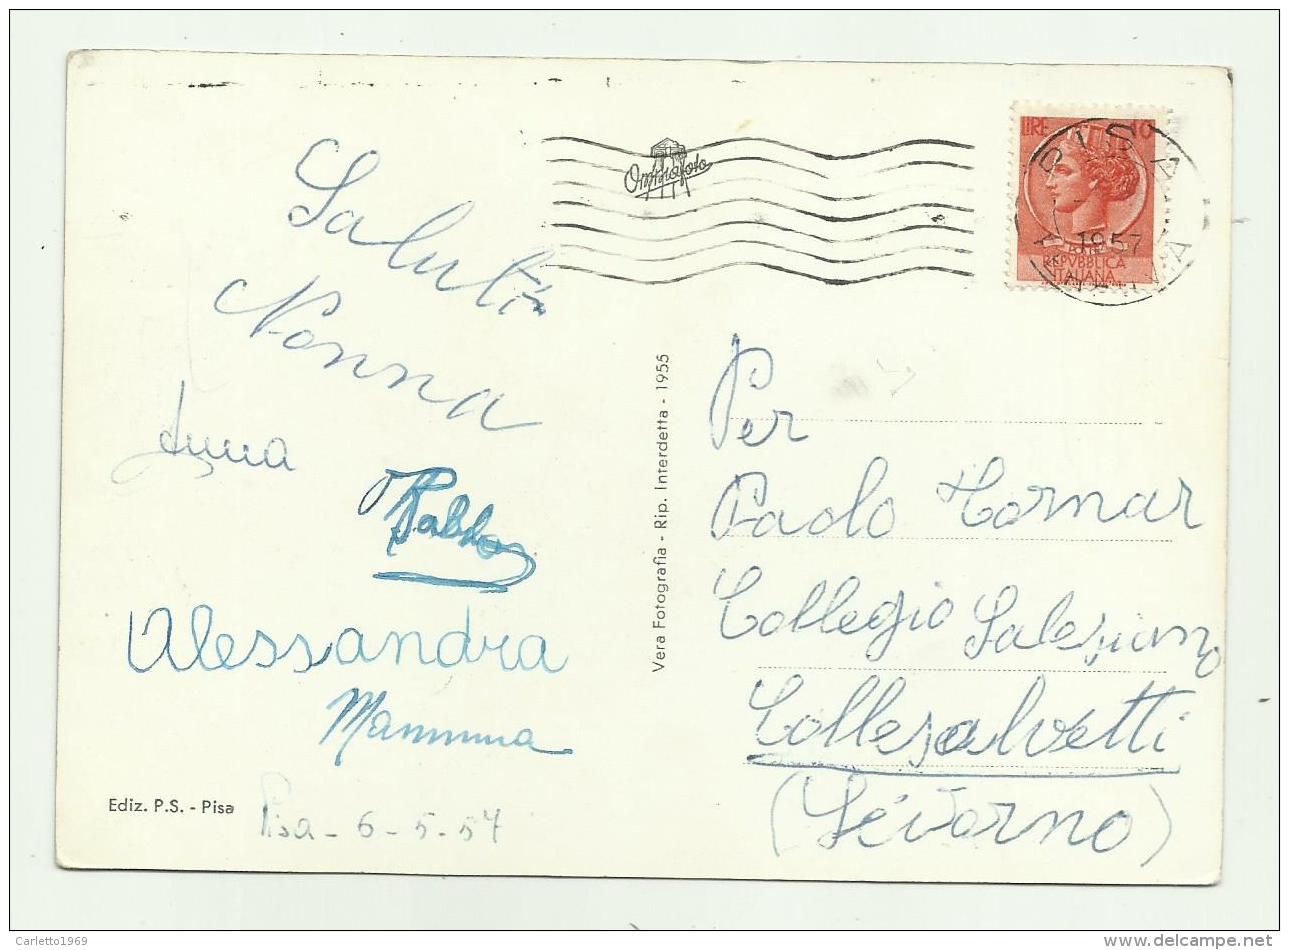 Saluti
Nonna
Anna
Alessandra
Mammma
Ediz. P.S. - Pisa
Pisa - 6 - 5 - 57
Omniafoto
Vera Fotografia - Rip. Interdetta - 1955
LIRE 10
PISA
1957
REPVBBLICA
ITALIANA
Per
Paolo Tornar
Collegio Salesiano
Collesalvetti
(Livorno)
Carletto1969
delcampe.net